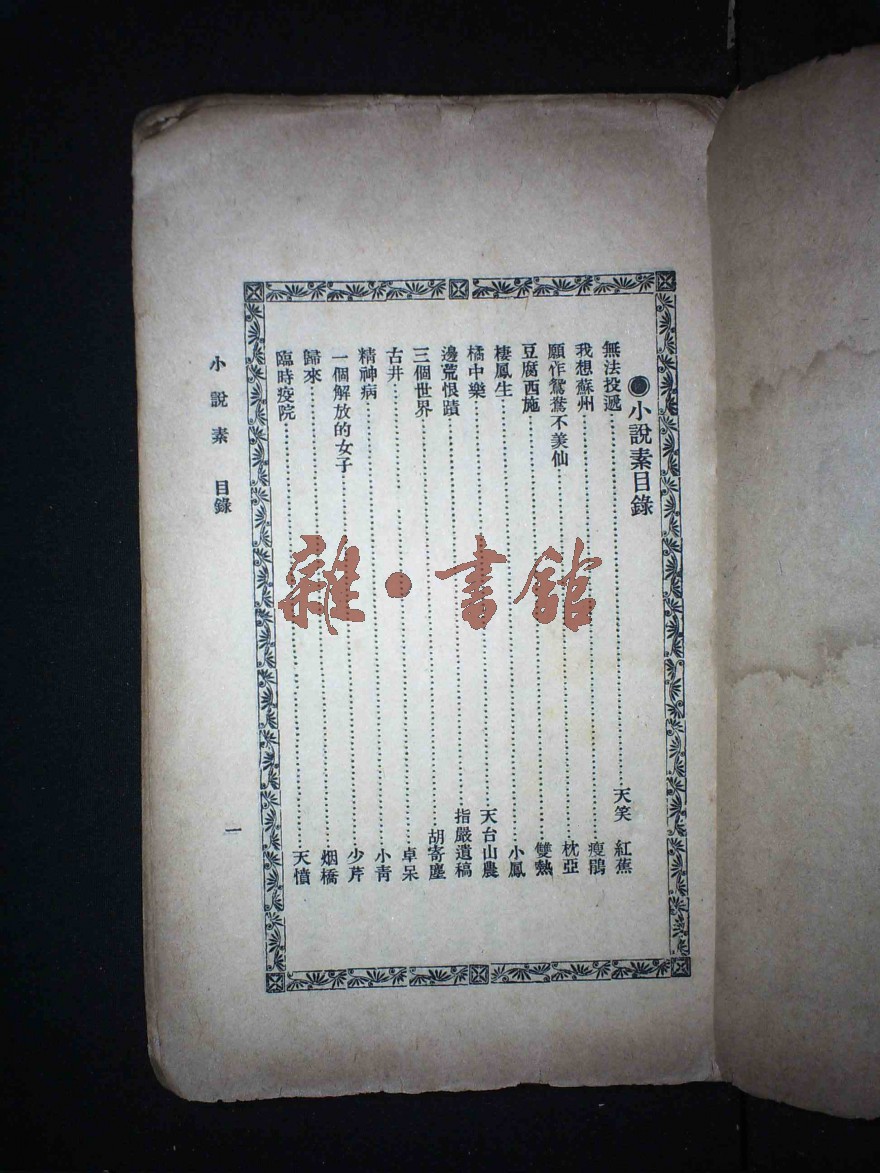 小說素目錄
無法投遞 天笑 紅蕉
我想蘇州 瘦鵑
願作鴛鴦不羨仙 枕亞
豆腐西施 雙熱
棲鳳生 小鳳
橘中樂 天台山農
邊荒恨蹟 指嚴遺稿
三個世界 胡寄塵
古井 卓呆
精神病 小青
一個解放的女子 少芹
歸來 烟橋
臨時疫院 天憤
小說素 目錄 一
雜·書館